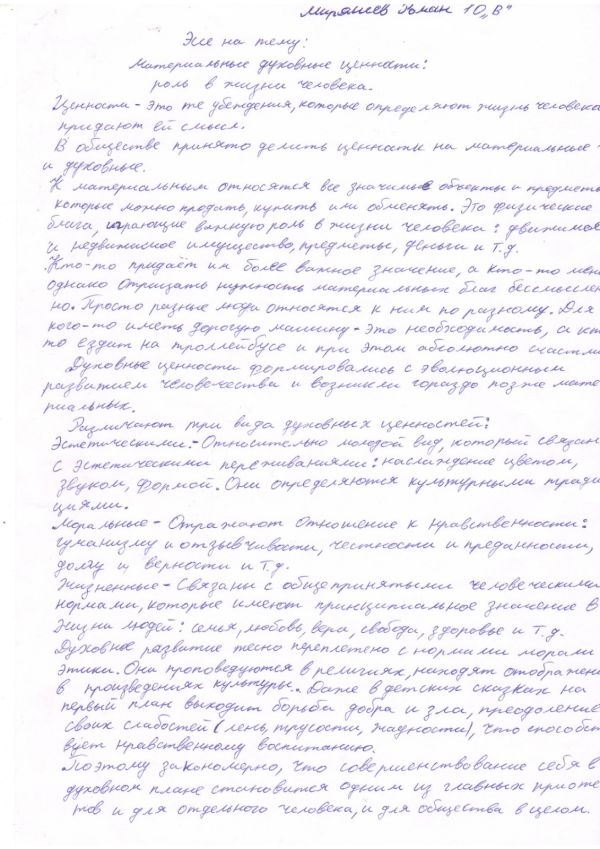 Миряшев Усман 10 „В"
Эссе на тему:
Материальные духовные ценности:
роль в жизни человека.
Ценности - это те убеждения, которые определяют жизнь человека
придают ей смысл.
В обществе принято делить ценности на материальные
и духовные.
К материальным относятся все значимые объекты и предметы
которые можно продать, купить или обменять. Это физические
блага, играющие важную роль в жизни человека: движимое
и недвижимое имущество, предметы, деньги и т.д.
Кто-то придаёт им более важное значение, а кто-то мене
однако отрицать нужность материальных благ бессмыслен
но. Просто разные люди относятся к ним по разному. Для
кого-то иметь дорогую машину - это необходимость, а кто
то ездит на троллейбусе и при этом абсолютно счастли
Духовные ценности формировались с эволюционным
развитием человечества и возникли гораздо позже мате
риальных.
Различают три вида духовных ценностей:
Эстетическими. - Относительно молодой вид, который связан
с эстетическими переживаниями: наслаждение цветом,
звуком, формой. Они определяются культурными тради
циями.
Моральные - Отражают отношение к нравственности:
гуманизму и отзывчивости, честности и преданности,
долгу и верности и т.д.
Жизненные - Связаны с общепринятыми человеческими
нормами, которые имеют принципиальное значение в
жизни людей: семья, любовь, вера, свобода, здоровье и т.д.
Духовное развитие тесно переплетено с нормами морали
этики. Они проповедуются в религиях, находят отображени
в произведениях культуры. Даже в детских сказках на
первый план выходит борьба добра и зла, преодоление
своих слабостей (лень, трусости, жадности), что способст
вует нравственному воспитанию.
Поэтому закономерно, что совершенствование себя в
духовном плане становится одним из главных приоте
тов и для отдельного человека, и для общества в целом.